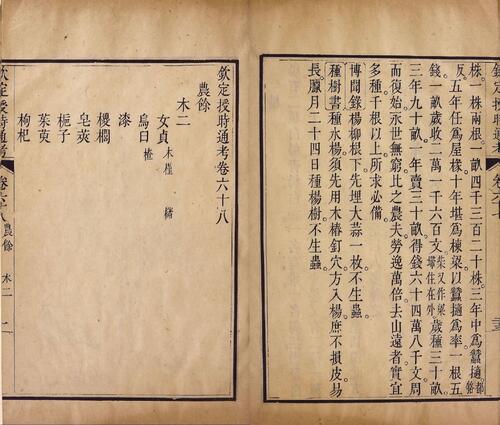 欽定授時通考
株。一株兩根。一畝四千三百二十株。三年中為蠶樀都格
反。五年任為屋椽。十年堪為棟梁。以蠶樀為率。一根五
錢。一畝歲收二萬一千六百文。柴又作梁埽住在外。歲種三十畝。
三年九十畝。一年賣三十畝。得錢六十四萬八千文。周
而復始。永世無窮。比之農夫。勞逸萬倍。去山遠者。實宜
多種。千根以上。所求必備。
博聞錄楊柳根下先埋大蒜一枚不生蟲。
種樹書種水楊須先用木樁釘穴方入楊。庶不損皮易
長。臘月二十四日種楊樹不生蟲。
欽定授時通考卷六十八
農餘
木二
女貞 木槿 櫧
烏臼
漆
椶櫚
皂莢
梔子
茱萸
枸杞
欽定授時通考
卷六十八
農餘
木二